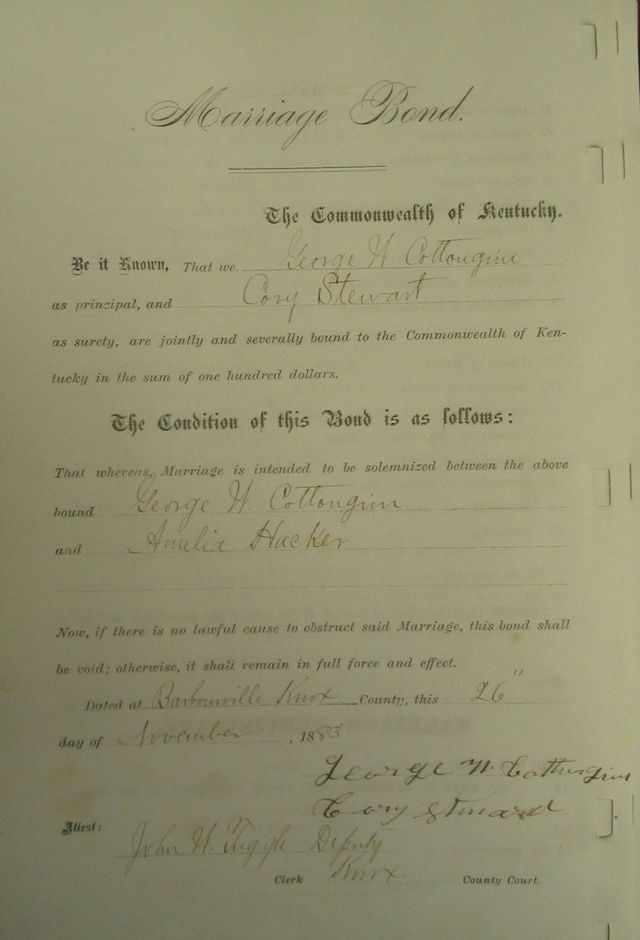 Marriage Bond.
The Commonwealth of Kentucky.
Be it Known, That we George W Cottongim
as principal, and Cory Stewart
as surety, are jointly and severally bound to the Commonwealth of Ken-
tucky in the sum of one hundred dollars.
The Condition of this Bond is as follows:
That whereas, Marriage is intended to be solemnized between the above
bound George W. Cottongim
and Amelia Hacker
Now, if there is no lawful cause to obstruct said Marriage, this bond shall
be void; otherwise, it shall remain in full force and effect.
Dated at Barbourville Knox County, this 26"
day of November, 1883
George W.
Cory
Attest:
John W Tuggle Deputy
Clerk Knox County Court.